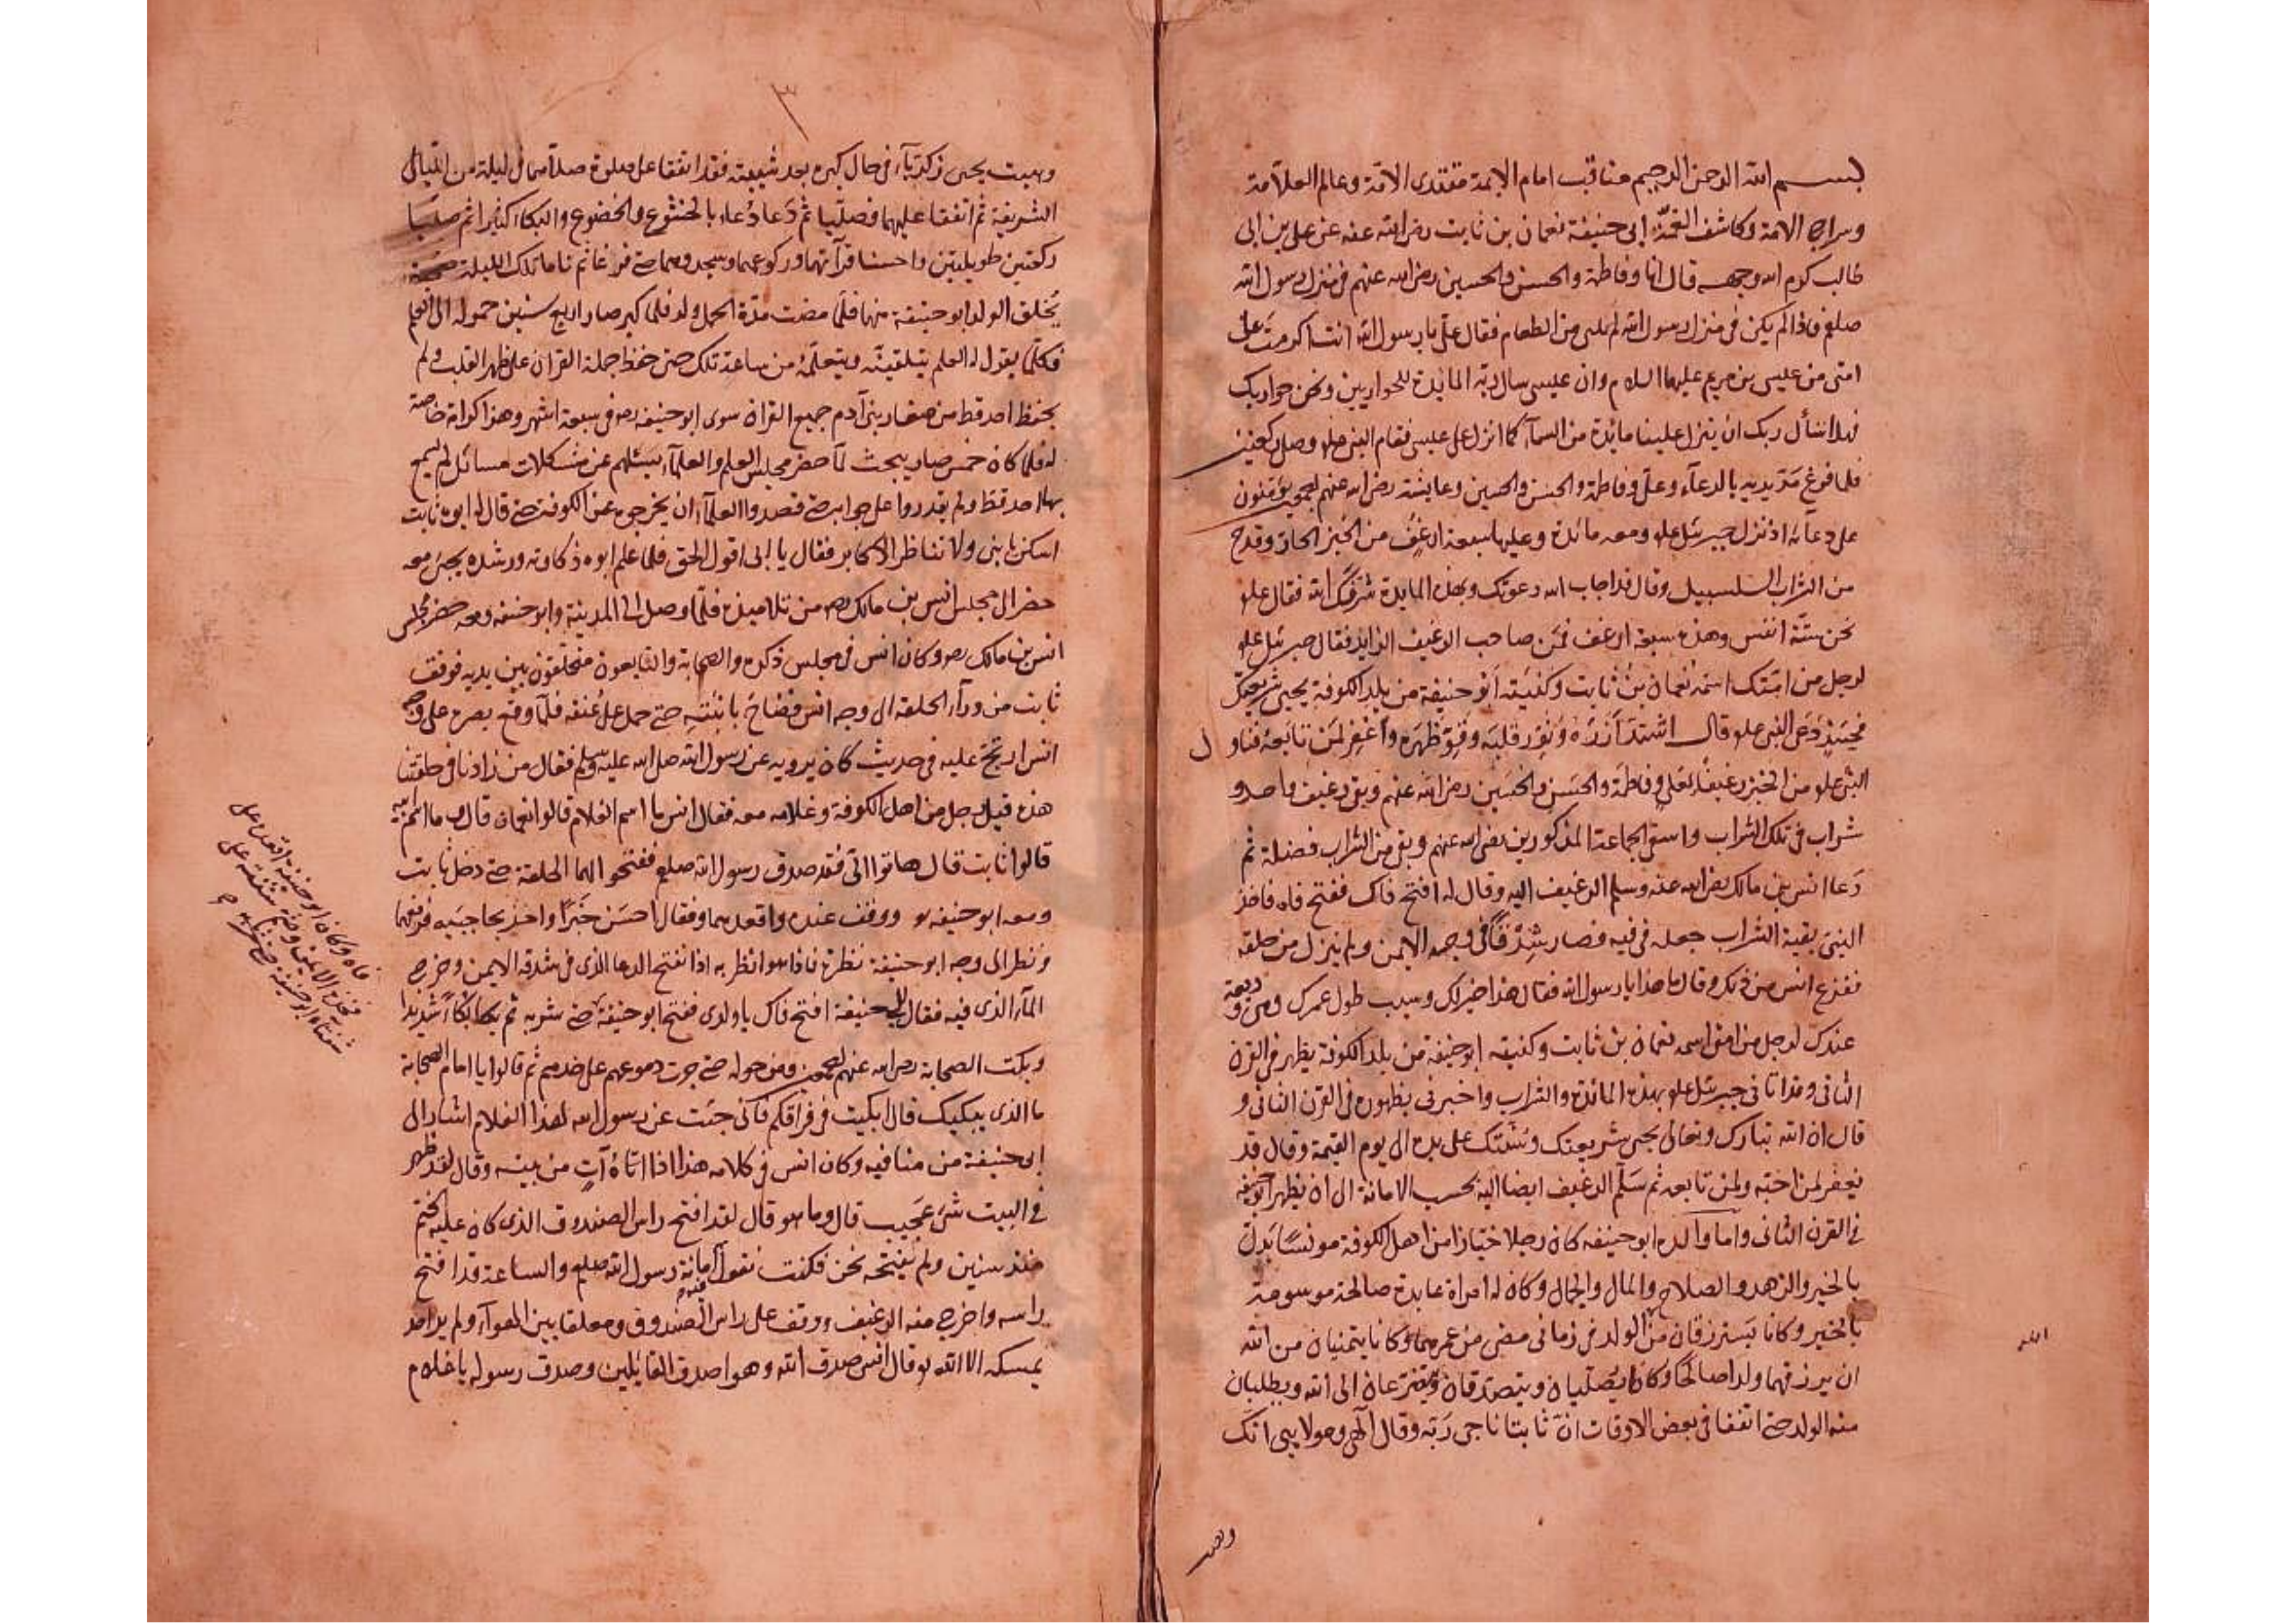 بسم الله الرحمن الرحيم مناقب امام الايمة مقتدى الامة وعالم العلامة
وسراج الامة وكاشف الغمة ابى حنيفة نعمان بن ثابت رضى الله عنه عن على بن ابى
طالب كرم الله وجهه قال انا وفاطمة والحسن والحسين رضى الله عنهم فى منزل رسول الله
صلعم فاذا لم يكن فى منزل رسول الله من الطعام فقال على يا رسول الله انت اكرمت على
امتى من عليسى بن مريم عليهما السلام وان عليسى سال ربه المايدة للحواريين ونحن حواريك
فهلا تسأل ربك ان ينزل علينا مائدة من السمآء كما انزل على عليسى فقام النبى وصلى ركعتين
فلما فرغ مد يديه بالدعآء وعلى وفاطمة والحسن والحسين وعايشة رضى الله عنهم يؤمنون
على دعائه اذ نزل جبرئيل ومعه مائدة وعليها سبعة ارغف من الخبز الحار وقدح
من الشراب السلسبيل وقال قد اجاب الله دعوتك وبهذه المايدة شرفك الله فقال
نحن ستة انفس وهذه سبعة ارغف فمن صاحب الرغيف الزايد فقال جبرئيل
لرجل من امتك اسمه نعمان بن ثابت وكنيته ابو حنيفة من بلد الكوفة يحيى شريعتك
فحينئذ دعى النبى وقال اشتد ازره ونور قلبه وقو ظهره واغفر لمن تابعه فناول
النبى من الخبز رغيفا لعلى وفاطمة والحسن والحسين رضى الله عنهم وبقى رغيف واحد و
شراب فى تلك الشراب واسقى الجماعة المذكورين رضى الله عنهم وبقى من الشراب فضلة ثم
دعا انس بن مالك رضى الله عنه وسلم الرغيف اليه وقال له افتح فاك ففتح فاه فاخذ
النبى بقية الشراب جعله فى فيه فصار شدقا فى وجهه الايمن ولم ينزل من حلقه
ففزع انس من ذلك وقال ما هذا يا رسول الله فقال هذا خير لك وسبب طول عمرك وديعة
عندك لرجل من امتى اسمه نعمان بن ثابت وكنيته ابو حنيفة من بلد الكوفة يظهر فى القرن
الثانى وقد اتانى جبرئيل بهذه المائدة والشراب واخبرنى بظهوره فى القرن الثانى و
قال ان الله تبارك وتعالى يحيى شريعتك وسنتك على يده الى يوم القيمة وقال قد
يغفر لمن احبه ولمن تابعه ثم سلم الرغيف ايضا اليه بحسب الامانة الى ان يظهر ابو حنيفه
فى القرن الثانى واما والد ابو حنيفه كان رجلا من اهل الكوفة
بالخير والزهد والصلاح والمال والجمال وكان له امراة عابدة صالحة موسومة
بالخير وكانا يسترزقان من الله الولد فى زمانى مضى من عمرهما وكانا يتمنيان من الله
ان يرزقهما ولدا صالحا وكانا يصليان ويتصدقان ويتضرعان الى الله ويطلبان
منه الولد حتى اتفقا فى بعض الاوقات ان ثابتا ناجى ربه وقال الهى ومولايى انك
وهب
الله
٣
وهبت يحيى زكريآء فى حال كبره بعد شيبته فقد اتفقا على صلوة فى ليلة من الليالى
الشريفة ثم اتفقا عليهما فصليا ثم دعا دعاء بالخشوع والخضوع والبكاء كثيرا ثم صليا
ركعتين طويليتين واحسنا قرآتهما وركوعهما وسجدوهما حتى فرغا ثم ناما تلك الليلة
يخلق الولد ابو حنيفة منها فلما مضت مدة الحمل ولد فلما كبر صار اربع سنين حموله الى المعلم
فكلما يقول له المعلم يتلقينه ويتعلمه من ساعة تلك حتى حفظ جملة القران على ظهر القلب ولم
يحفظ احد قط من صغار بنى آدم جميع القران سوى ابو حنيفه فى سبعة اشهر وهذا كرامة خاصة
له فلما كان خمس صار يبحث لما حضر مجلس العلم والعلمآء يسئلهم عن مشكلات مسائل لم يسمع
بها احد قط ولم يقدروا على جوابه حتى قصدوا العلمآء ان يخرجوه عن الكوفة حتى قال له ابوه ثابت
اسكن يا بنى ولا تناظر الاكابر فقال يا ابى اقول الحق فلما علم ابوه ذكاوته ورشده يجئ معه
حضر الى مجلس انس بن مالك من تلاميذه فلما وصل الى المدينة وابو حنيفه ومعه حضر مجلس
انس بن مالك وكان انس فى مجلس ذكره والصحابة والتابعون متحلقون بين يديه فوقف
ثابت من ورآء الحلقة الى وجه انس حتى حمل على عنقه فلما وقع بصره على وجه
انس ارتج عليه فى حديث كان يرويه عن رسول الله صلى الله عليه وسلم فقال من زادنا فى حلقتنا
هذه قيل رجل من اهل الكوفة وغلامه معه فقال انس ما اسم الغلام قالوا نعمان قال وما اسم ابيه
قالوا ثابت قال هاتوا الى فقد صدق رسول الله صلعم ففتحوا لهما الحلقة حتى دخل ثابت
ومعه ابو حنيفه ووقف عنده واقعدهما وفقال احسن خبرا واخذ بحاجبيه فرفعهما
ونظر الى وجه ابو حنيفة نظرة فاذا هو انظر به اذا نفتح الدعا الذى فى شدقه الايمن وخرج
المآء الذى فيه فقال حنيفة افتح فاك يا ولدى ففتح ابو حنيفة حتى شربه ثم بكا بكآء شديدا
وبكت الصحابة رضى الله عنهم ومن حوله حتى جرت دموعهم على خدهم ثم قالوا يا امام الصحابة
ما الذى يبكيك قال ابكيت فى فراقكم فانى جئت عن رسول الله لهذا الغلام اشار الى
ابى حنيفة من منا فيه وكان انس فى كلامه هذا اذا اتاه آت من بيته وقال لقد ظهر
فى البيت شئ عجيب قال وما هو قال لقد افتح راس الصندوق الذى كان عليه ختم
منذ سنين ولم يفتحه نحن فكنت نقول امانة رسول الله صلعم والساعة قد افتح
راسه واخرج منه الرغيف ووقف على راس الصندوق ومعلقا بين الهوآء ولم ير احد
يمسكه الا الله وقال انس صدق الله وهو اصدق القايلين وصدق رسوله يا غلام
فاه وكان ابو حنيفة